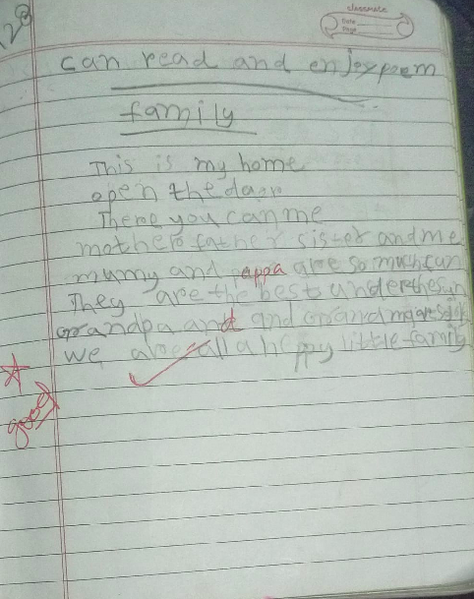 classmate
Date
Page
23
can read and enjoy poem
family
This is my home
open the door
There you can me
mother father sister and me
mumy and pappa are so much fun
They are the best under the sun
grandpa and and grandma are so
we are all a happy little family
good